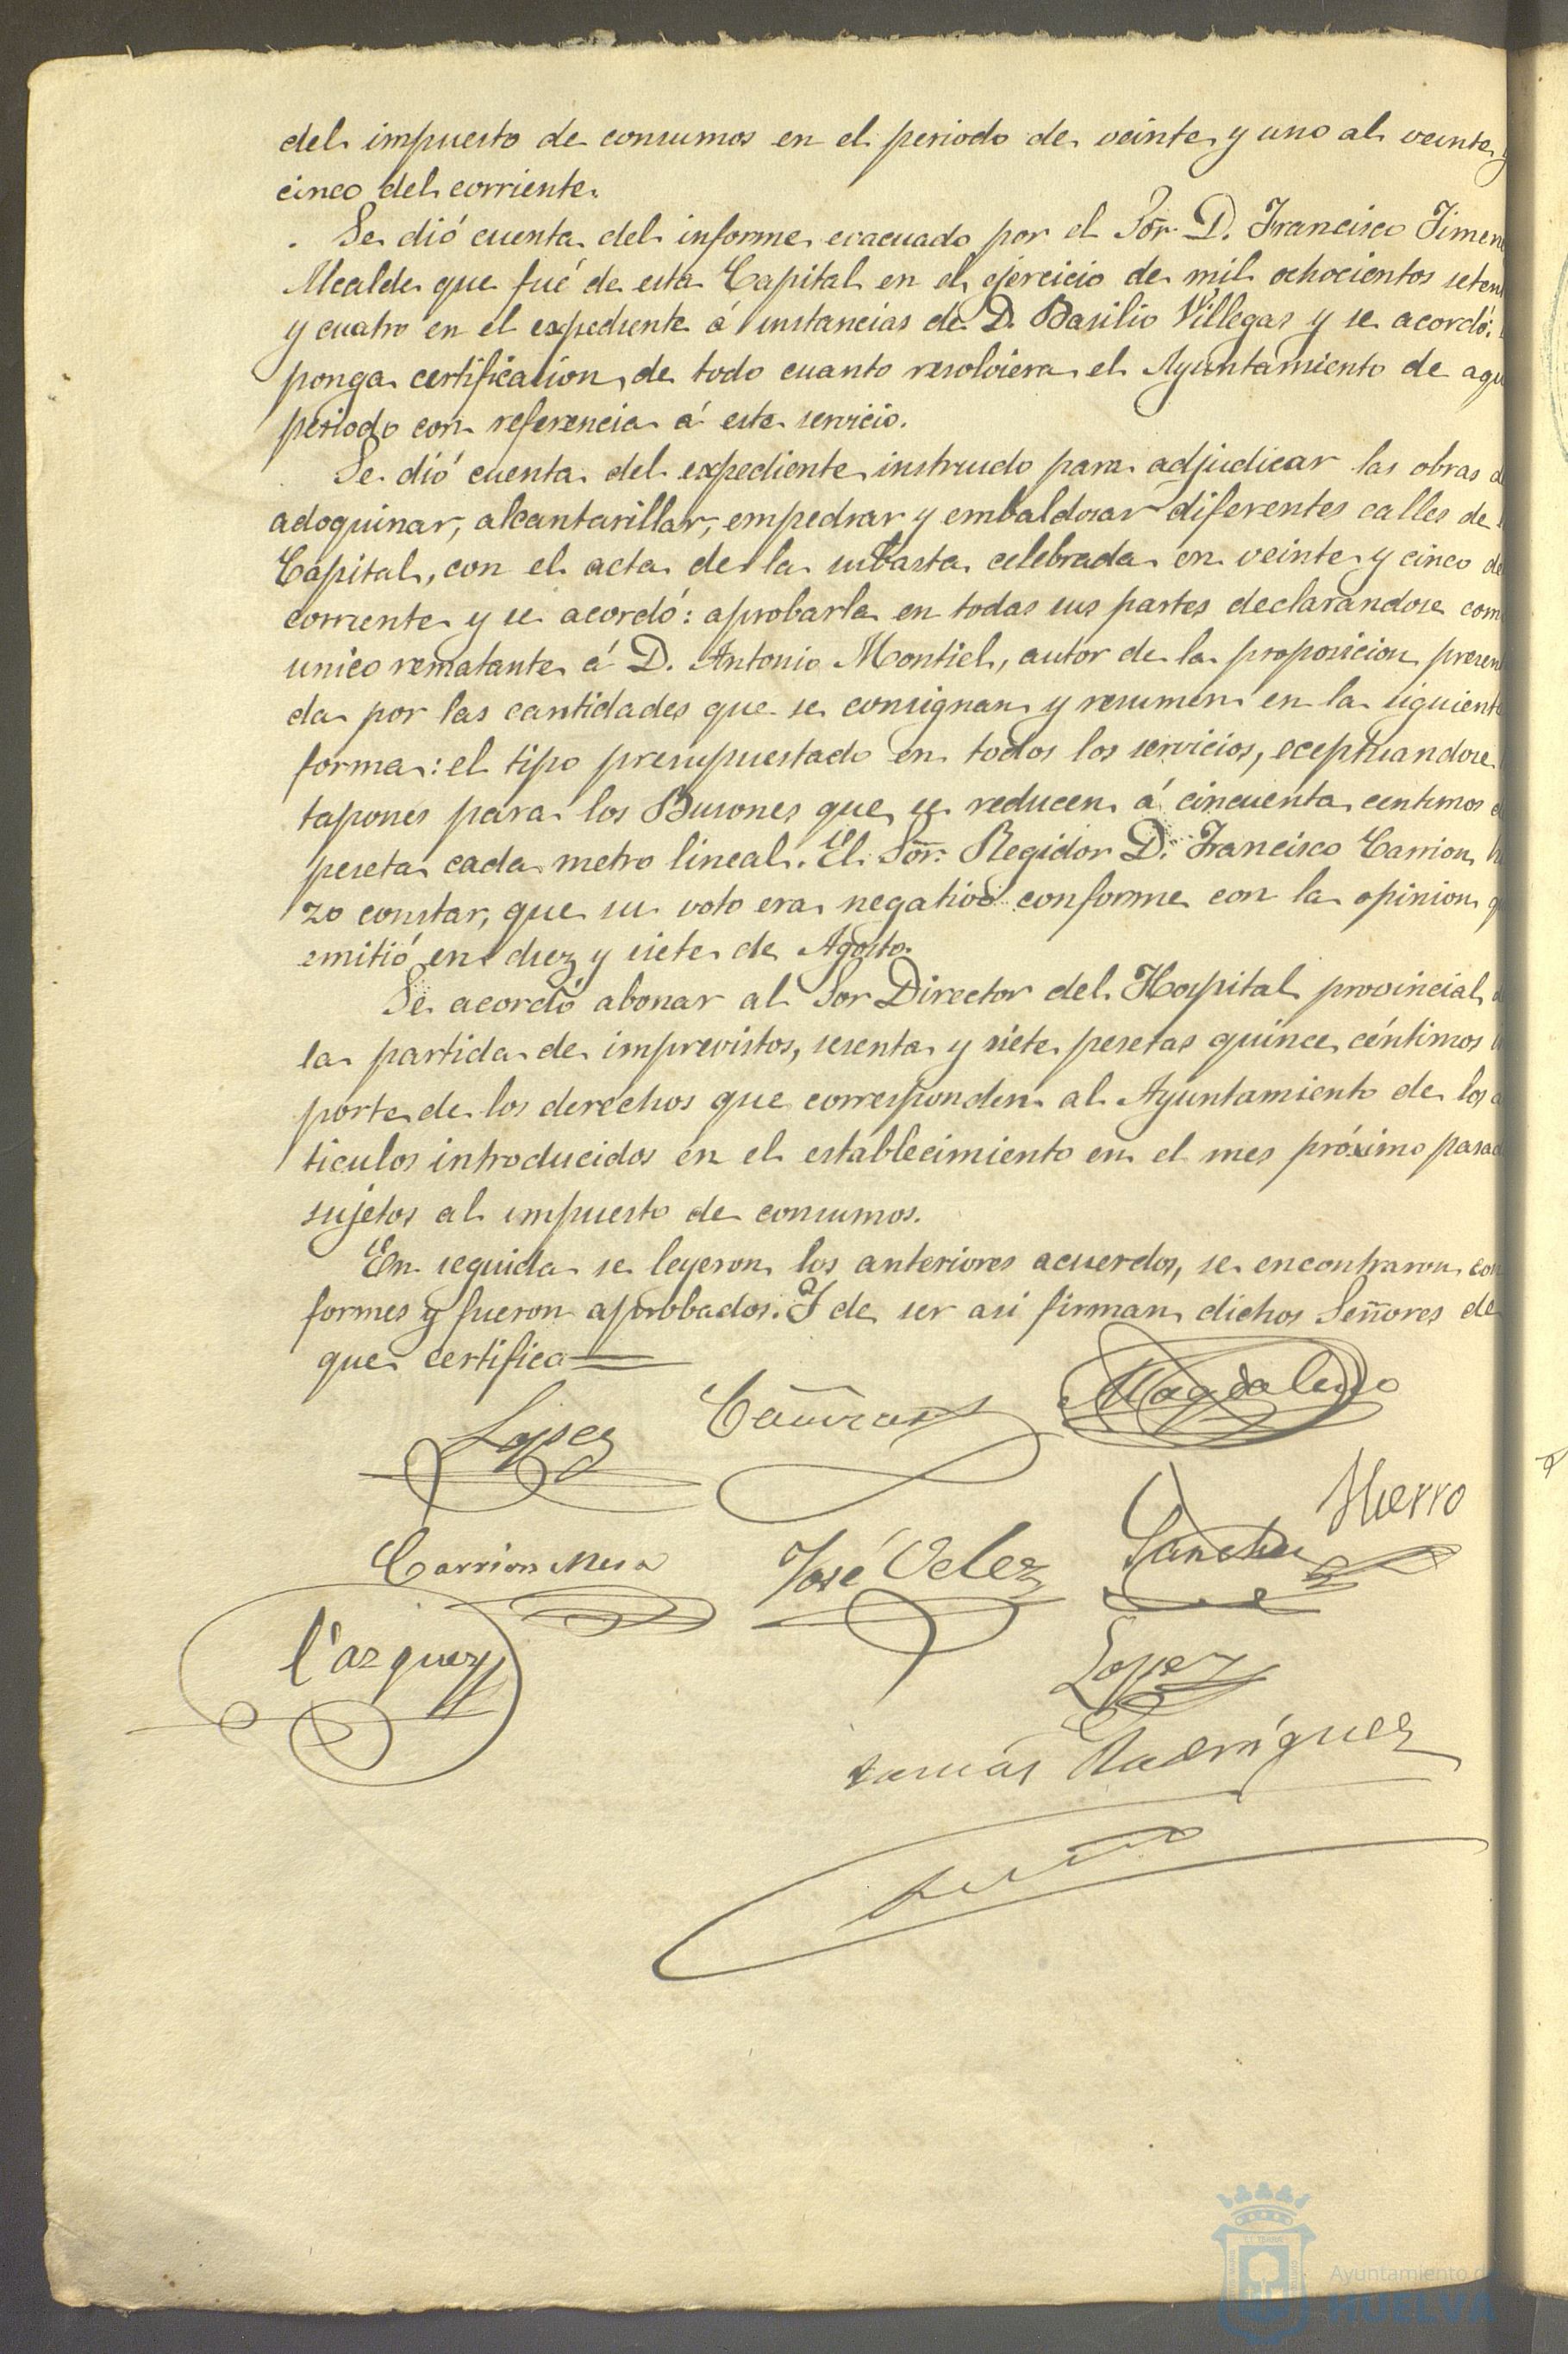 del impuesto de consumos en el periodo de veinte y uno al veinte y
cinco del corriente.
Se dió cuenta del informe evacuado por el Sor. D. Francisco Jimen
Alcalde que fué de esta Capital en el ejercicio de mil ochocientos seten
y cuatro en el expediente á instancias de D. Basilio Villegas y se acordó:
ponga certificacion de todo cuanto resolviera el Ayuntamiento de aqu
periodo con referencia á este servicio.
Se dió cuenta del expediente instruido para adjudicar las obras d
adoquinar, alcantarillar, empedrar y embaldosar diferentes calles de
Capital, con el acta de la subasta celebrada en veinte y cinco de
corriente y se acordó: aprobarla en todas sus partes declarandose com
unico rematante á D. Antonio Montiel, autor de la proposicion presen
da por las cantidades que se consignan y resumen en la siguiente
forma: el tipo presupuestado en todos los servicios, eceptuandose
tapones para los Busones que se reducen á cincuenta centimos d
peseta cada metro lineal. El Sor. Regidor D. Francisco Carrion hi
zo constar, que su voto era negativo conforme con la opinion q
emitió en diez y siete de Agosto.
Se acordó abonar al Sor Director del Hospital provincial d
la partida de imprevistos, sesenta y siete pesetas quince céntimos
porte de los derechos que corresponden al Ayuntamiento de los a
ticulos introducidos en el establecimiento en el mes próximo pasad
sujetos al impuesto de consumos.
En seguida se leyeron los anteriores acuerdos, se encontraron con
formes y fueron aprobados. Y de ser asi firman dichos Señores de
que certifico
Lopez Magdaleno
Hierro
Carrion Mesa José Velez Sanchez
Vazquez
Lopez
Tomás Rodríguez
Ayuntamiento d
HUELVA